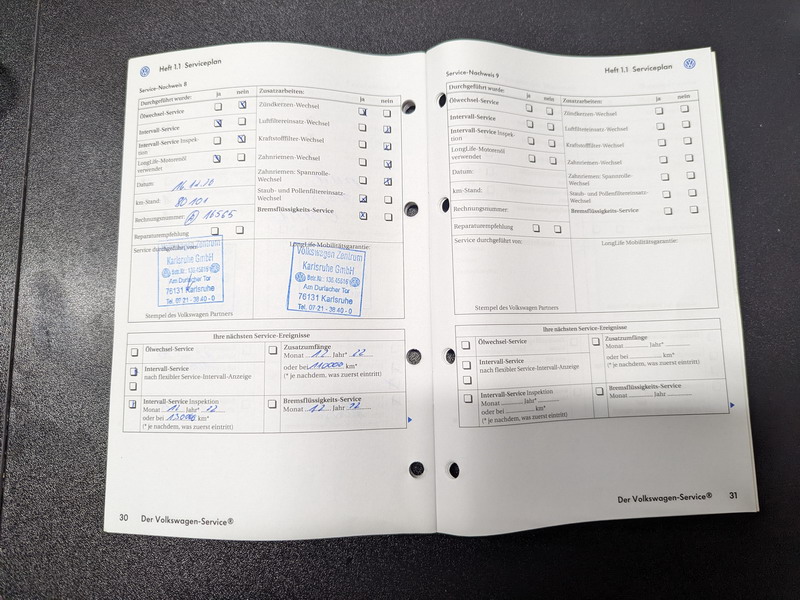 Heft 1.1 Serviceplan
Service-Nachweis 8
Durchgeführt wurde: ja nein
Ölwechsel-Service
Intervall-Service
Intervall-Service Inspek-
tion
LongLife-Motorenöl
verwendet
Datum:
km-Stand: 80 101
Rechnungsnummer: 16565
Reparaturempfehlung
Zusatzarbeiten: ja nein
Zündkerzen-Wechsel
Luftfiltereinsatz-Wechsel
Kraftstofffilter-Wechsel
Zahnriemen-Wechsel
Zahnriemen: Spannrolle-
Wechsel
Staub- und Pollenfiltereinsatz-
Wechsel
Bremsflüssigkeits-Service
Service durchgeführt von:
Volkswagen Zentrum
Karlsruhe GmbH
Am Durlacher Tor
76131 Karlsruhe
Tel. 07 21 - 38 40 - 0
Stempel des Volkswagen Partners
LongLife-Mobilitätsgarantie:
Volkswagen Zentrum
Karlsruhe GmbH
Am Durlacher Tor
76131 Karlsruhe
Tel. 07 21 - 38 40 - 0
Ihre nächsten Service-Ereignisse
Ölwechsel-Service
Intervall-Service
nach flexibler Service-Intervall-Anzeige
Intervall-Service Inspektion
Monat 12 Jahr* 12
oder bei 130000 km*
(* je nachdem, was zuerst eintritt)
Zusatzumfänge
Monat 12 Jahr* 22
oder bei 110000 km*
(* je nachdem, was zuerst eintritt)
Bremsflüssigkeits-Service
Monat 12 Jahr
30 Der Volkswagen-Service®
Service-Nachweis 9
Heft 1.1 Serviceplan
Durchgeführt wurde: ja nein
Ölwechsel-Service
Intervall-Service
Intervall-Service Inspek-
tion
LongLife-Motorenöl
verwendet
Datum:
km-Stand:
Rechnungsnummer:
Reparaturempfehlung
Zusatzarbeiten: ja nein
Zündkerzen-Wechsel
Luftfiltereinsatz-Wechsel
Kraftstofffilter-Wechsel
Zahnriemen-Wechsel
Zahnriemen: Spannrolle-
Wechsel
Staub- und Pollenfiltereinsatz-
Wechsel
Bremsflüssigkeits-Service
Service durchgeführt von:
Stempel des Volkswagen Partners
LongLife Mobilitätsgarantie:
Ihre nächsten Service-Ereignisse
Ölwechsel-Service
Intervall-Service
nach flexibler Service-Intervall-Anzeige
Intervall-Service Inspektion
Monat Jahr*
oder bei km*
(* je nachdem, was zuerst eintritt)
Zusatzumfänge
Monat Jahr*
oder bei km*
(* je nachdem, was zuerst eintritt)
Bremsflüssigkeits-Service
Monat Jahr
Der Volkswagen-Service® 31